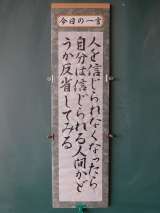 今日の一言
人を信じられなくなったら
自分は信じられる人間かど
うか反省してみる